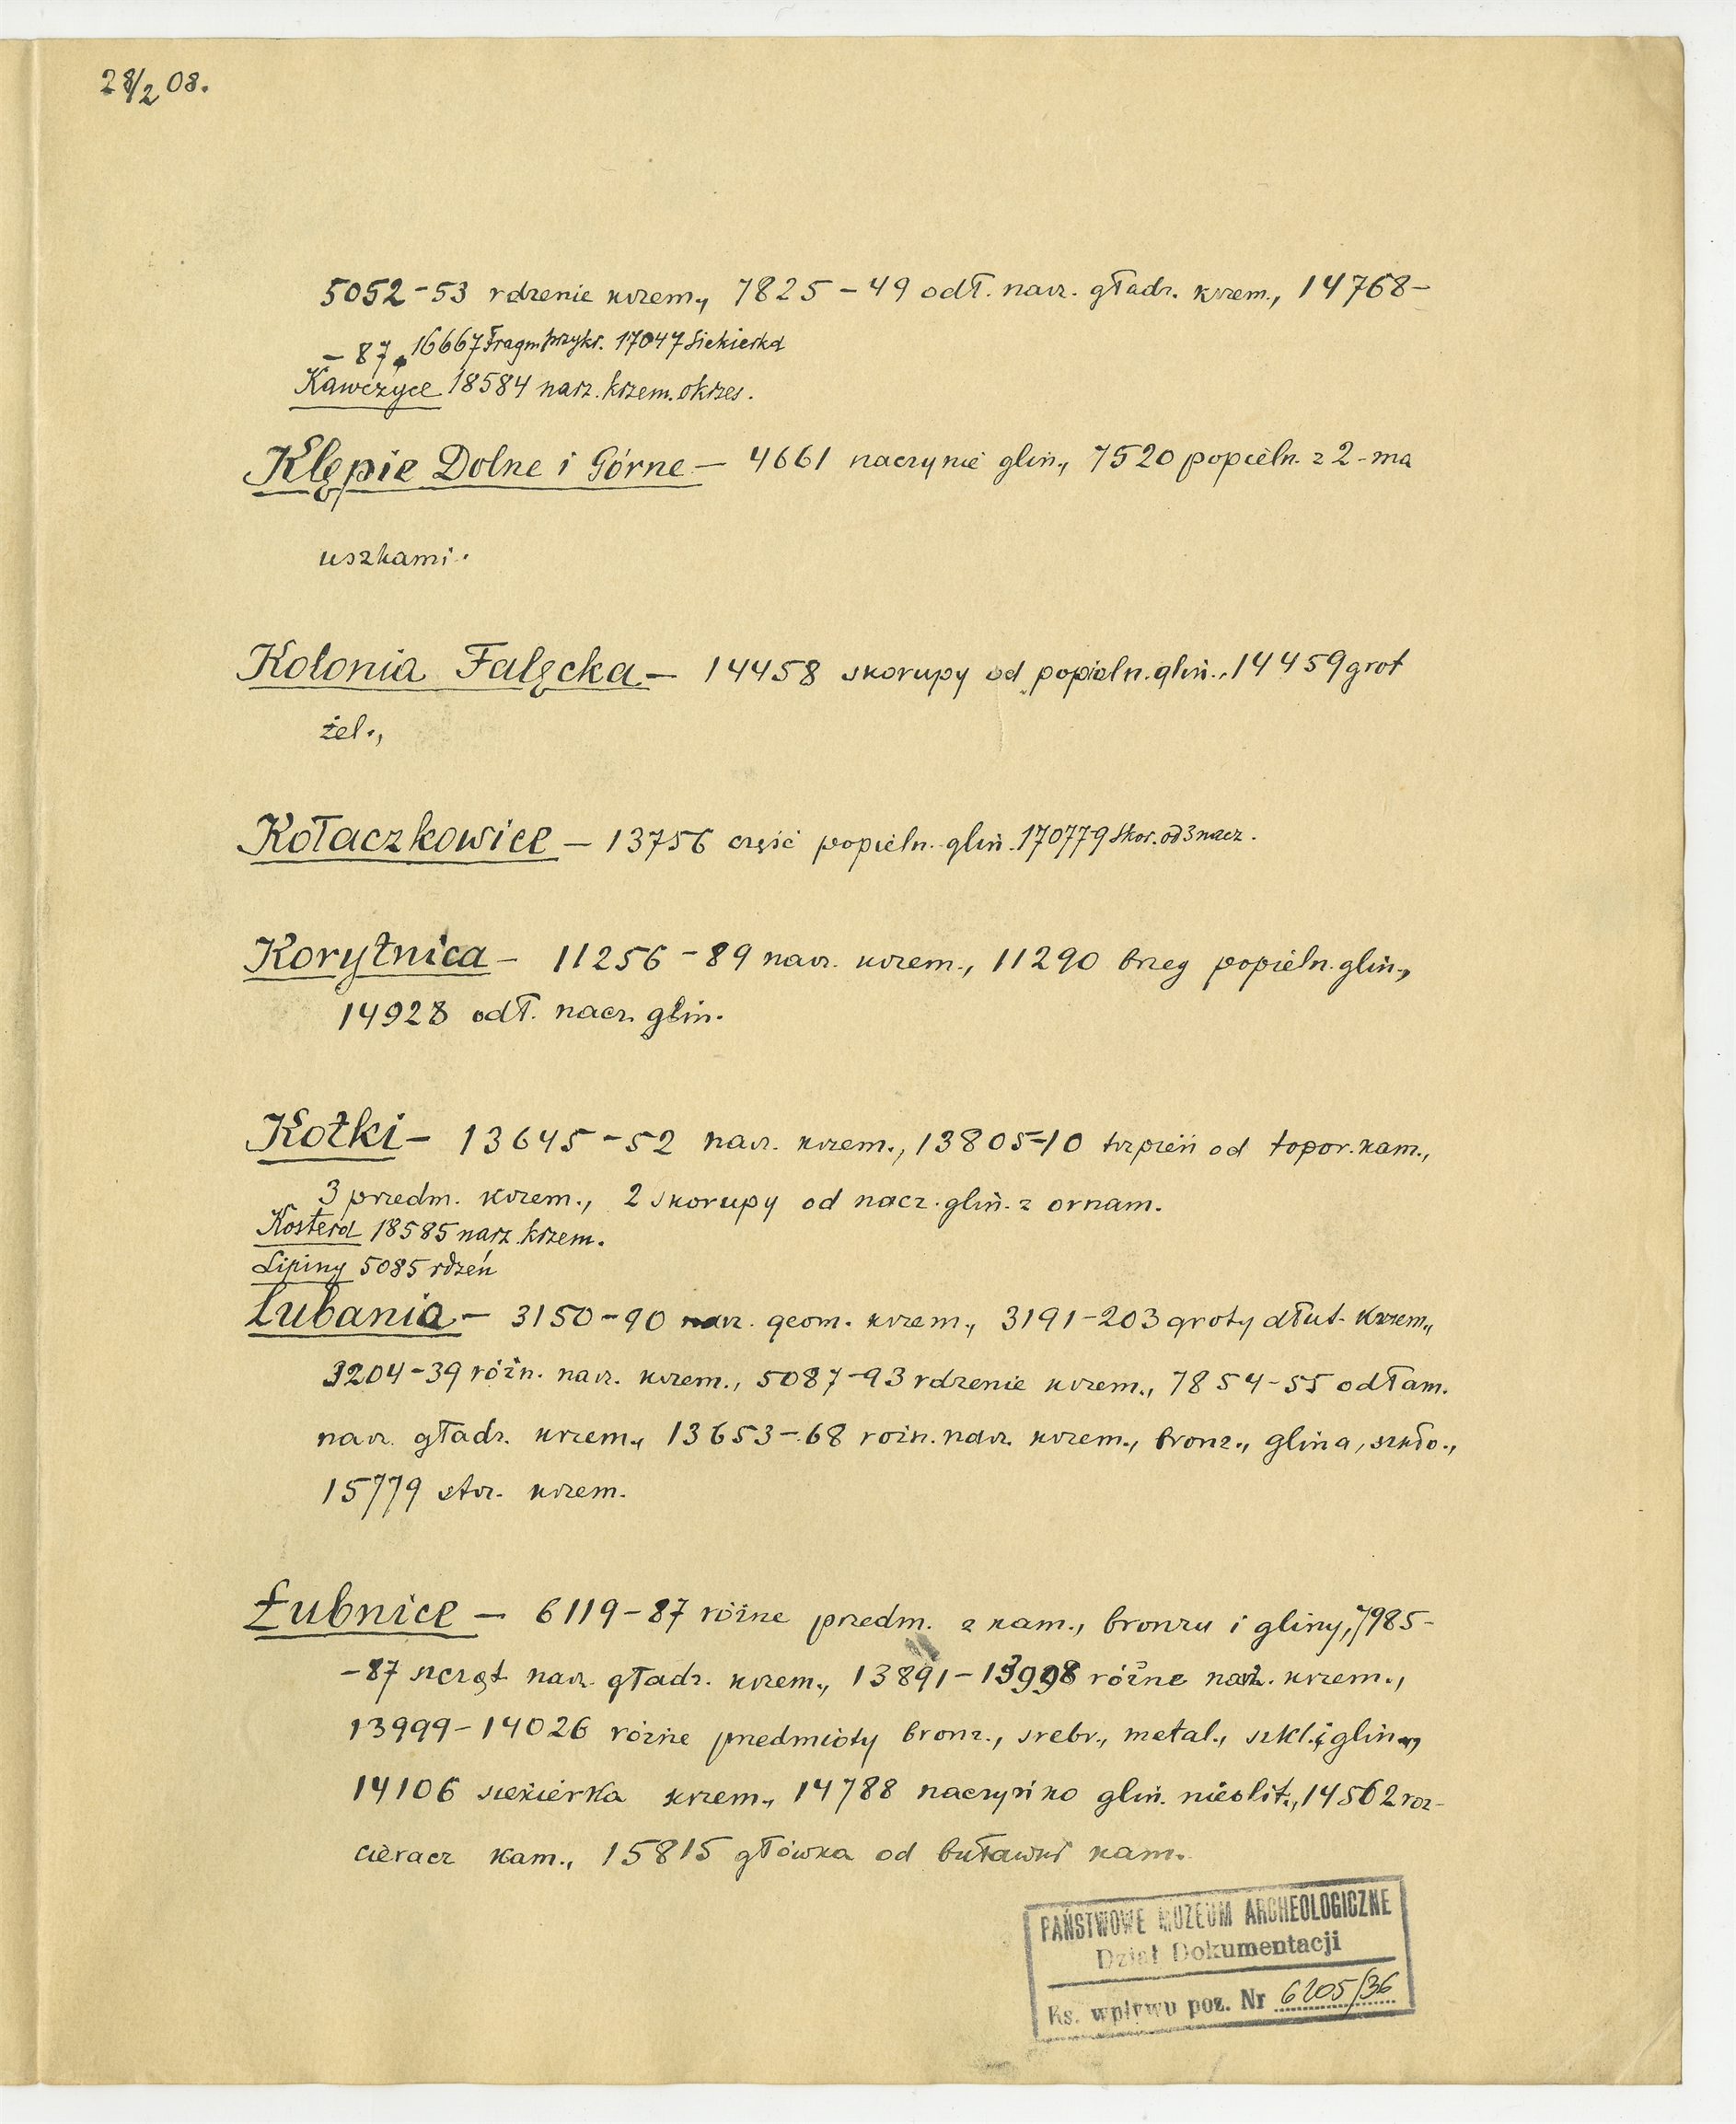 28/2 08.
5052-53 rdzenie krzem., 7825-49 odł. narz. gładz. krzem., 14768-
-87. 16667 Fragm przykr. 17047 Siekierka
Kawczyce 18584 narz. krzem. okrzes.
Klępie Dolne i Górne - 4661 naczynie glin., 7520 popieln. z 2-ma
uszkami.
Kolonia Falęcka - 14458 skorupy od popieln. glin., 14459 grot
żel.,
Kołaczkowice - 13756 część popieln. glin. 170779 Skor. od 3 nacz.
Korytnica - 11256-89 narz. krzem., 11290 brzeg popieln. glin.,
14928 odł. nacz. glin.
Kotki - 13645-52 narz. krzem., 13805-10 trzpień od topor. kam.,
3 przedm. krzem., 2 skorupy od nacz. glin. z ornam.
Kostera 18585 narz. krzem.
Lipiny 5085 rdzeń
Lubania - 3150-90 narz. geom. krzem., 3191-203 groty dłut. krzem.,
3204-39 różn. narz. krzem., 5087-93 rdzenie krzem., 7854-55 odłam.
narz. gładz. krzem., 13653-68 rożn. narz. krzem., bronz., glina, szkło.,
15779 stor. krzem.
Łubnice - 6119-87 różne przedm. z kam., bronzu i gliny, 7985-
-87 szcząt narz. gładz. krzem., 13891-13998 różne narz. krzem.,
13999-14026 różne przedmioty bronz., srebr., metal., szkl. i glin.,
14106 siekierka krzem., 14788 naczyńko glin. nieolit., 14562 roz-
cieracz kam., 15815 główka od buławki kam.
PAŃSTWOWE MUZEUM ARCHEOLOGICZNE
Dział Dokumentacji
Ks. wpływu poz. Nr 6205/36